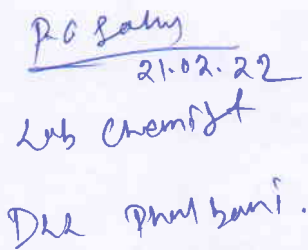 P C Sahu
21.02.22
Lab Chemist
DLL Phulbani.